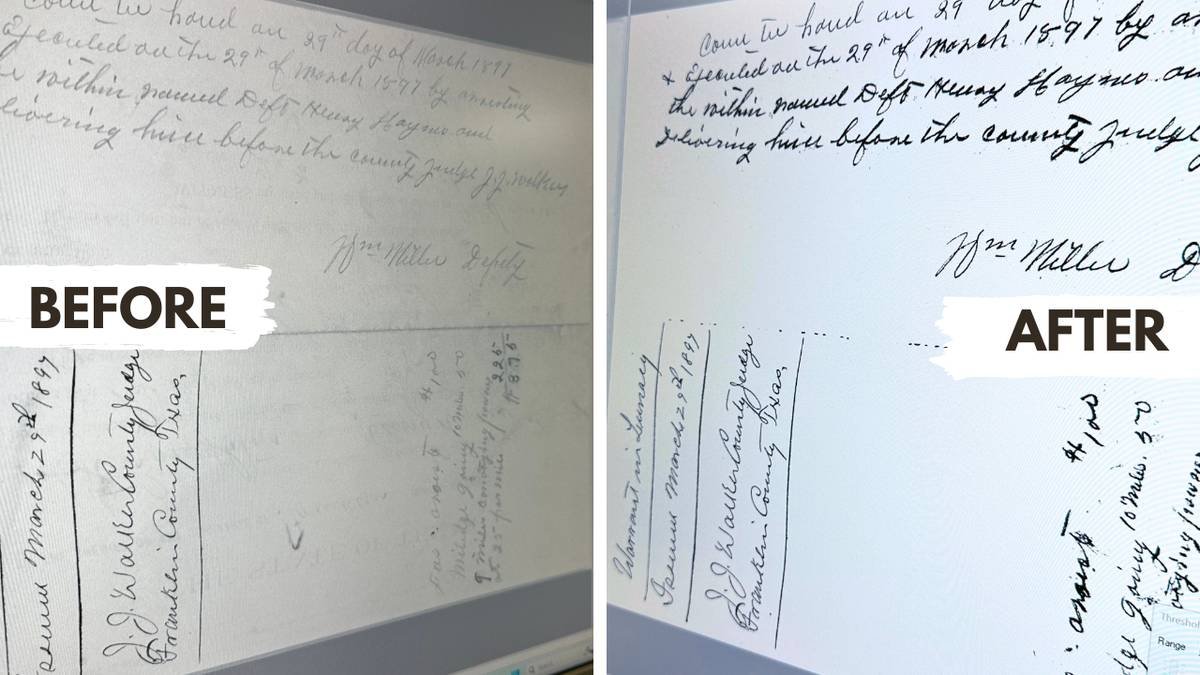 Come to hand on 29th day of March 1897
Executed on the 29th of March 1897 by arresting
the within named Deft Henry Haymo and
delivering him before the county Judge J. J. Walker
Wm Miller Deputy
BEFORE
March 29th 1897
J. J. Walker County Judge
Franklin County Texas,
arrest #1,00
going 10 miles. 50
miles
at 25 per mile 2 25
3.75
Come to hand on 29 day
x Executed on the 29th of March 1897 by
the within named Deft Henry Haymo an
Delivering him before the county Judge
Wm Miller D
AFTER
Warrant in Lunacy
Issued March 29th 1897
J. J. Walker County Judge
Franklin County Texas,
arrest #1,00
going 10 miles. 50
Threshol
Range